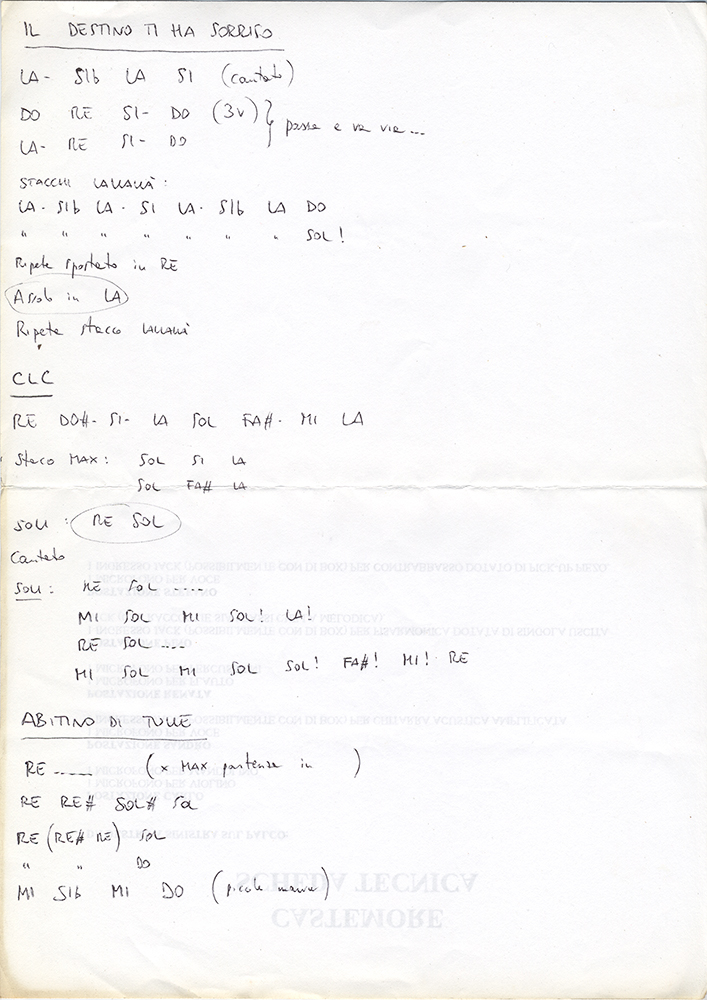 IL DESTINO TI HA SORRISO
LA- SIb LA SI (cantato)
DO RE SI- DO (3v) } passa e va via...
LA- RE SI- DO
STACCHI LALLALLÀ:
LA- SIb LA- SI LA- SIb LA DO
" " " " " " " SOL!
Ripete spostato in RE
Assolo in LA
Ripete stacco LALLALLÀ
CLC
RE DO#- SI- LA SOL FA#- MI LA
Stacco MAX: SOL SI LA
SOL FA# LA
SOLI: RE SOL
Cantato
SOLI: RE SOL ----
MI SOL MI SOL! LA!
RE SOL ----
MI SOL MI SOL SOL! FA#! MI! RE
ABITINO DI TULLE
RE ----- (x MAX partenza in )
RE RE# SOL# SOL
RE (RE# RE) SOL
" " DO
MI SIb MI DO (piccole manine)
SCHEDA TECNICA
CASTEMORE